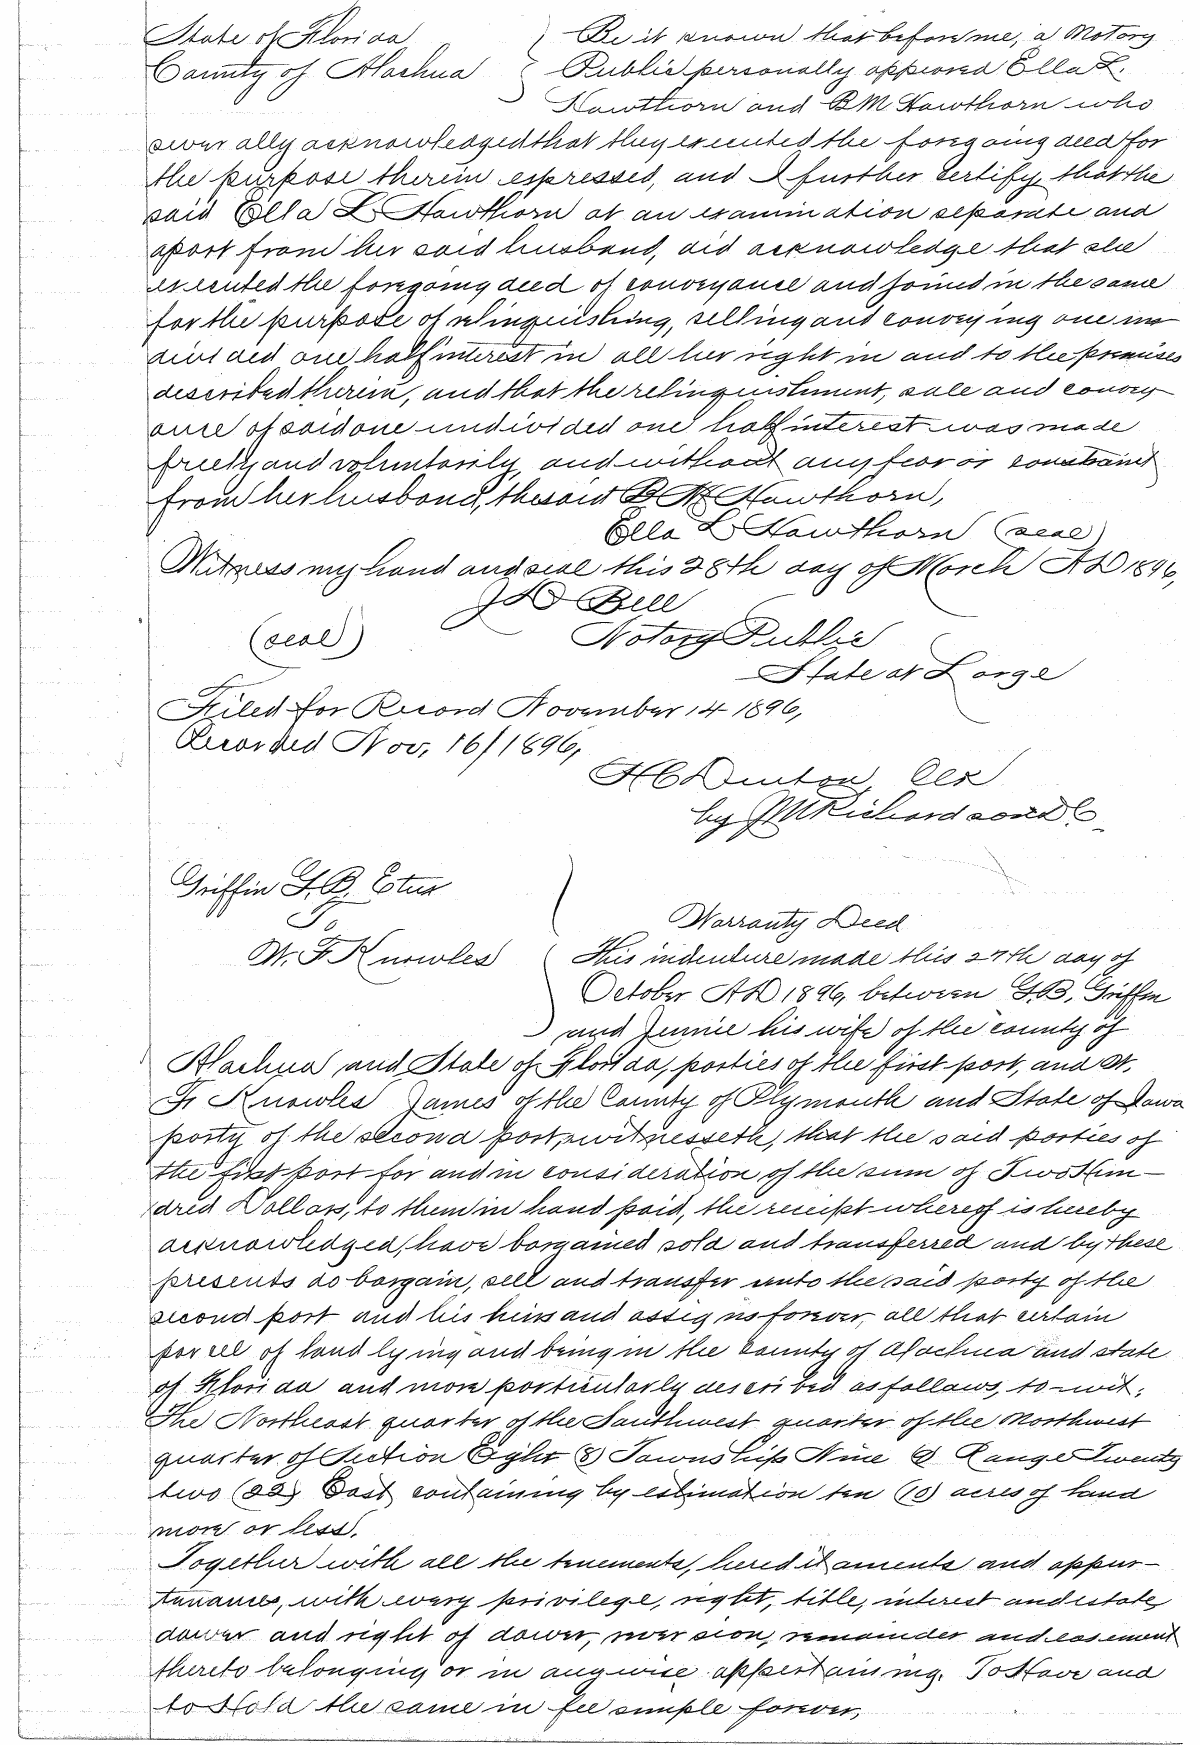 State of Florida
County of Alachua
Be it known that before me, a Notory
Public personally appeared Ella L.
Hawthorn and B M Hawthorn who
sever ally acknowledged that they executed the foregoing deed for
the purpose therein expressed, and I further certify that the
said Ella L Hawthorn at an examination separate and
apart from her said husband, did acknowledge that she
executed the foregoing deed of conveyance and joined in the same
for the purpose of relinquishing, selling and conveying one un
divided one half interest in all her right in and to the premises
described therein, and that the relinquishment, sale and convey
ance of said one undivided one half interest was made
freely and voluntarily and without any fear or constraint
from her husband, the said B M Hawthorn,
Ella L Hawthorn (seal)
Witness my hand and seal this 28th day of March AD 1896,
J D Bell
(seal) Notary Public
State at Large
Filed for Record November 14 1896,
Recorded Nov, 16/1896,
H C Denton, Clk
by J M Richardson D C
Griffin G. B. Etux
To
W. F. Knowles
Warranty Deed
This indenture made this 27th day of
October AD 1896, between G. B. Griffin
and Jennie his wife of the county of
Alachua and State of Florida, parties of the first part, and W.
F. Knowles James of the County of Plymouth and State of Iowa
party of the second part, witnesseth, that the said parties of
the first part for and in consideration of the sum of Two Hun-
dred Dollars, to them in hand paid, the receipt whereof is hereby
acknowledged, have bargained sold and transferred and by these
presents do bargain, sell and transfer unto the said party of the
second part and his heirs and assigns forever, all that certain
parcel of land lying and being in the County of Alachua and state
of Florida and more particularly described as follows, to-wit;
The Northeast quarter of the Southwest quarter of the Northwest
quarter of Section Eight (8) Township Nine (9) Range Twenty
two (22) East containing by estimation ten (10) acres of land
more or less.
Together with all the tenements, hereditaments and appur-
tenances, with every privilege, right, title, interest and estate,
dower and right of dower, reversion, remainder and easement
thereto belonging or in anywise appertaining. To Have and
to Hold the same in fee simple forever,